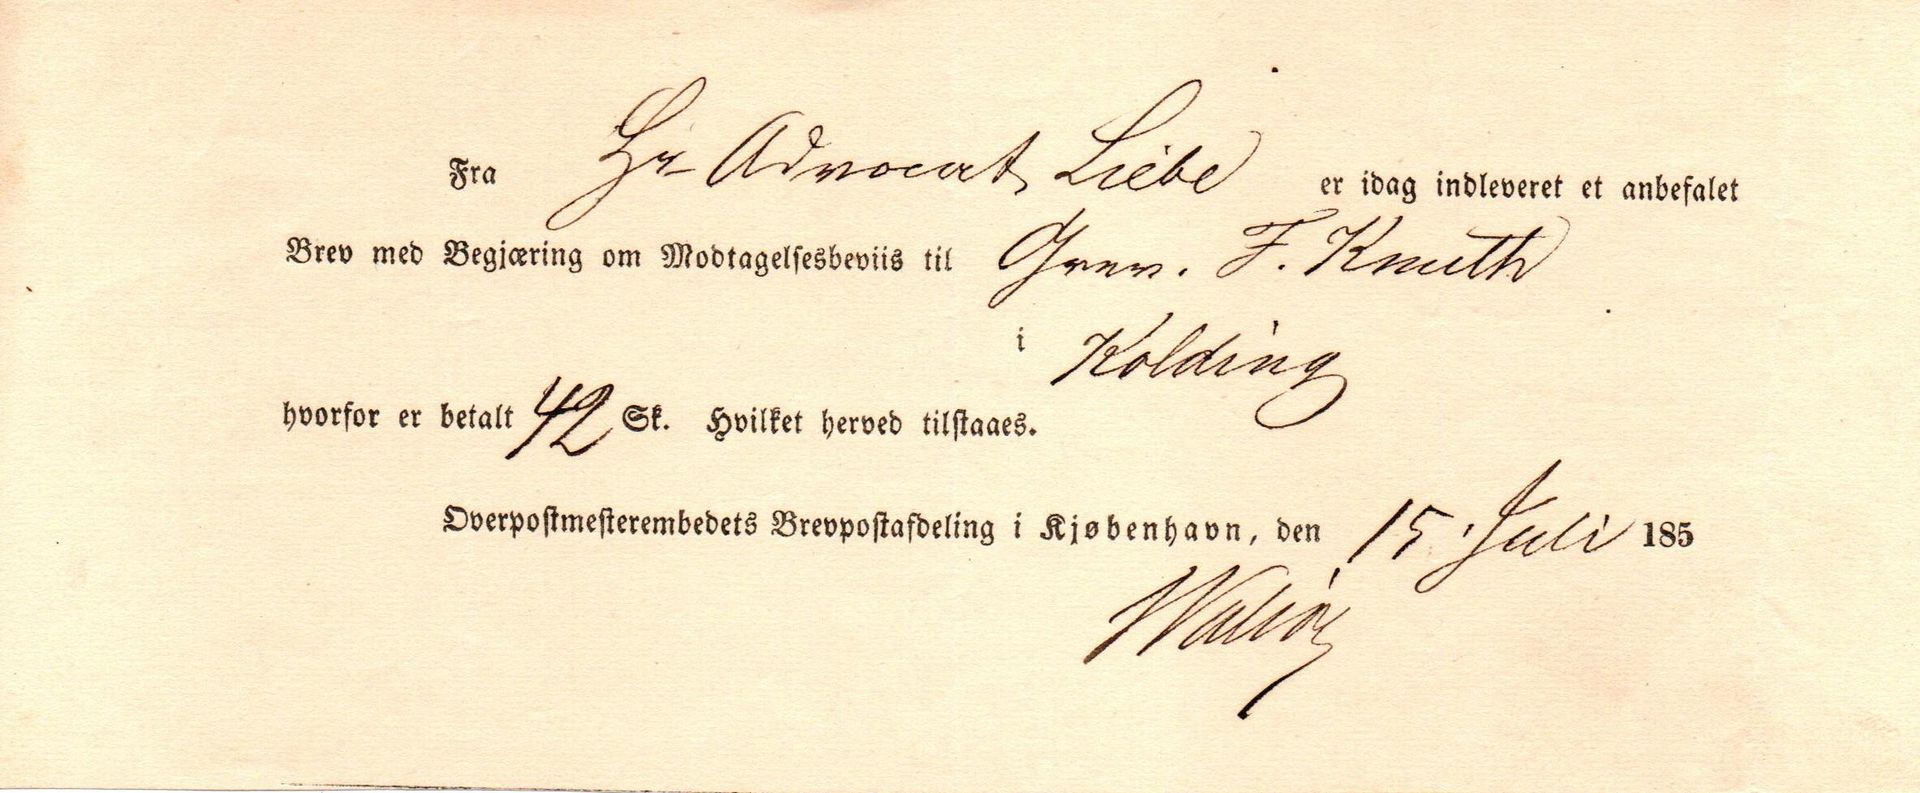 Fra Hr Advocat Liebe er idag indleveret et anbefalet
Brev med Begjæring om Modtagelsesbeviis til Grev. F. Knuth
i Kolding
hvorfor er betalt 42 Sk. Hvilket herved tilstaaes.
Overpostmesterembedets Brevpostafdeling i Kjøbenhavn, den 15 Juli 185